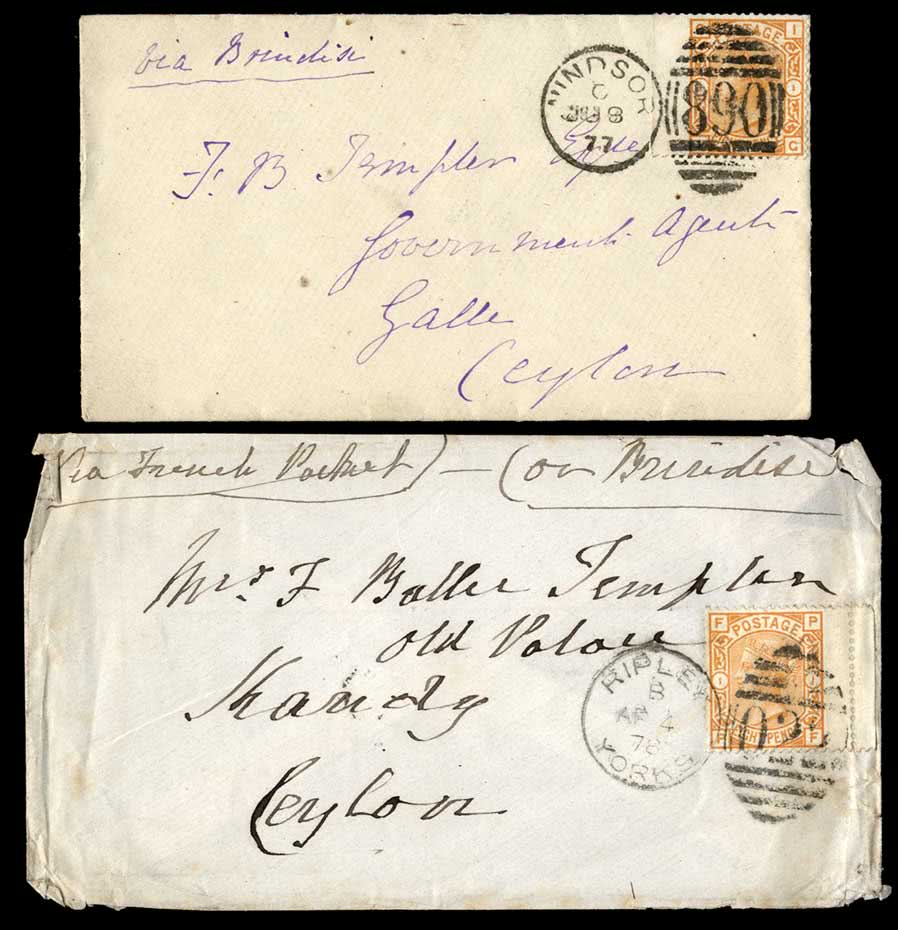 via Brindisi
WINDSOR
C
8
77
890
POSTAGE
I
G
F. B Templer Esqre
Government Agent
Galle
Ceylon
Via French Packet) — (or Brindisi
Mrs. F Buller Templer
Old Palace
Kandy
Ceylon
RIPLEY
B
AP 4
78
YORKS
F POSTAGE P
EIGHT PENCE
P F